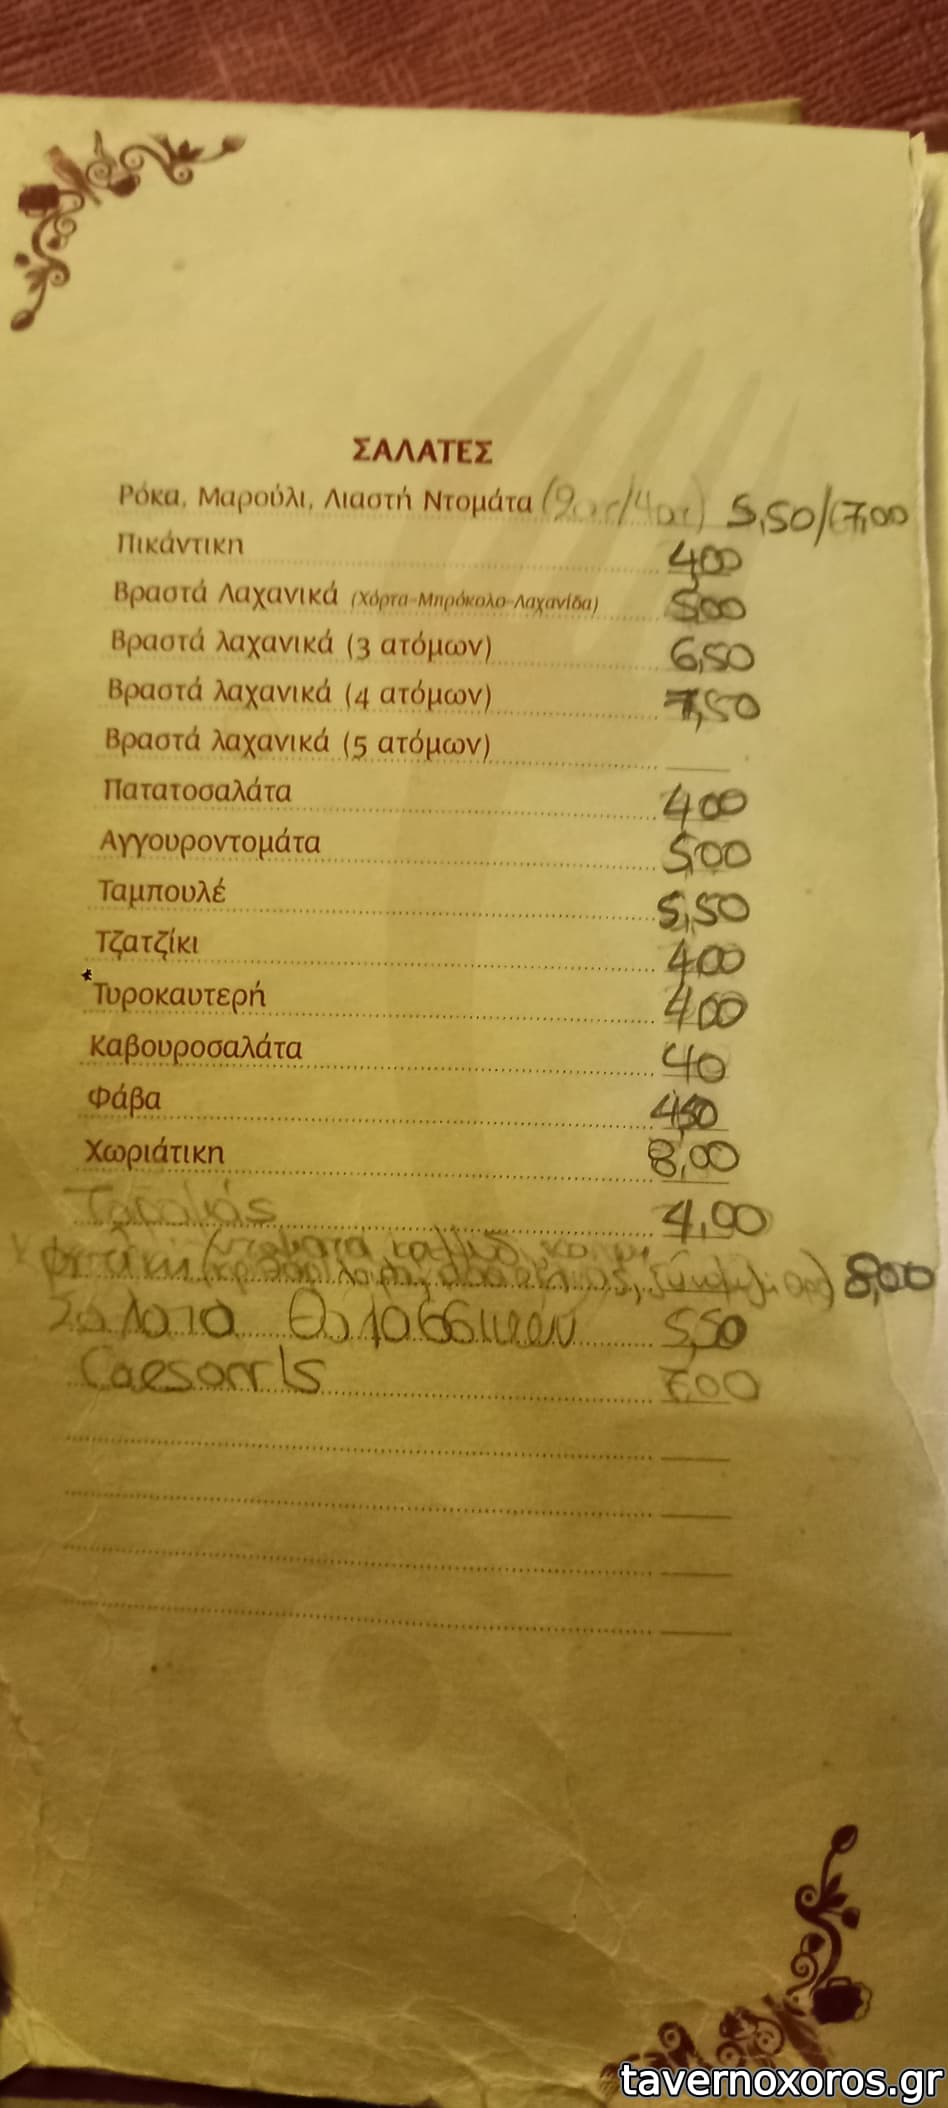 ΣΑΛΑΤΕΣ
Ρόκα, Μαρούλι, Λιαστή Ντομάτα (2ατ/4ατ) 5,50/7,00
Πικάντικη 4,00
Βραστά Λαχανικά (Χόρτα-Μπρόκολο-Λαχανίδα) 5,00
Βραστά λαχανικά (3 ατόμων) 6,50
Βραστά λαχανικά (4 ατόμων) 7,50
Βραστά λαχανικά (5 ατόμων)
Πατατοσαλάτα 4,00
Αγγουροντομάτα 5,00
Ταμπουλέ 5,50
Τζατζίκι 4,00
*Τυροκαυτερή 4,00
Καβουροσαλάτα 40
Φάβα 4,50
Χωριάτικη 8,00
4,00
(ντομάτα
8,00
Σαλάτα Θαλασσινών 5,50
Caesarr's 7,00
tavernoxoros.gr